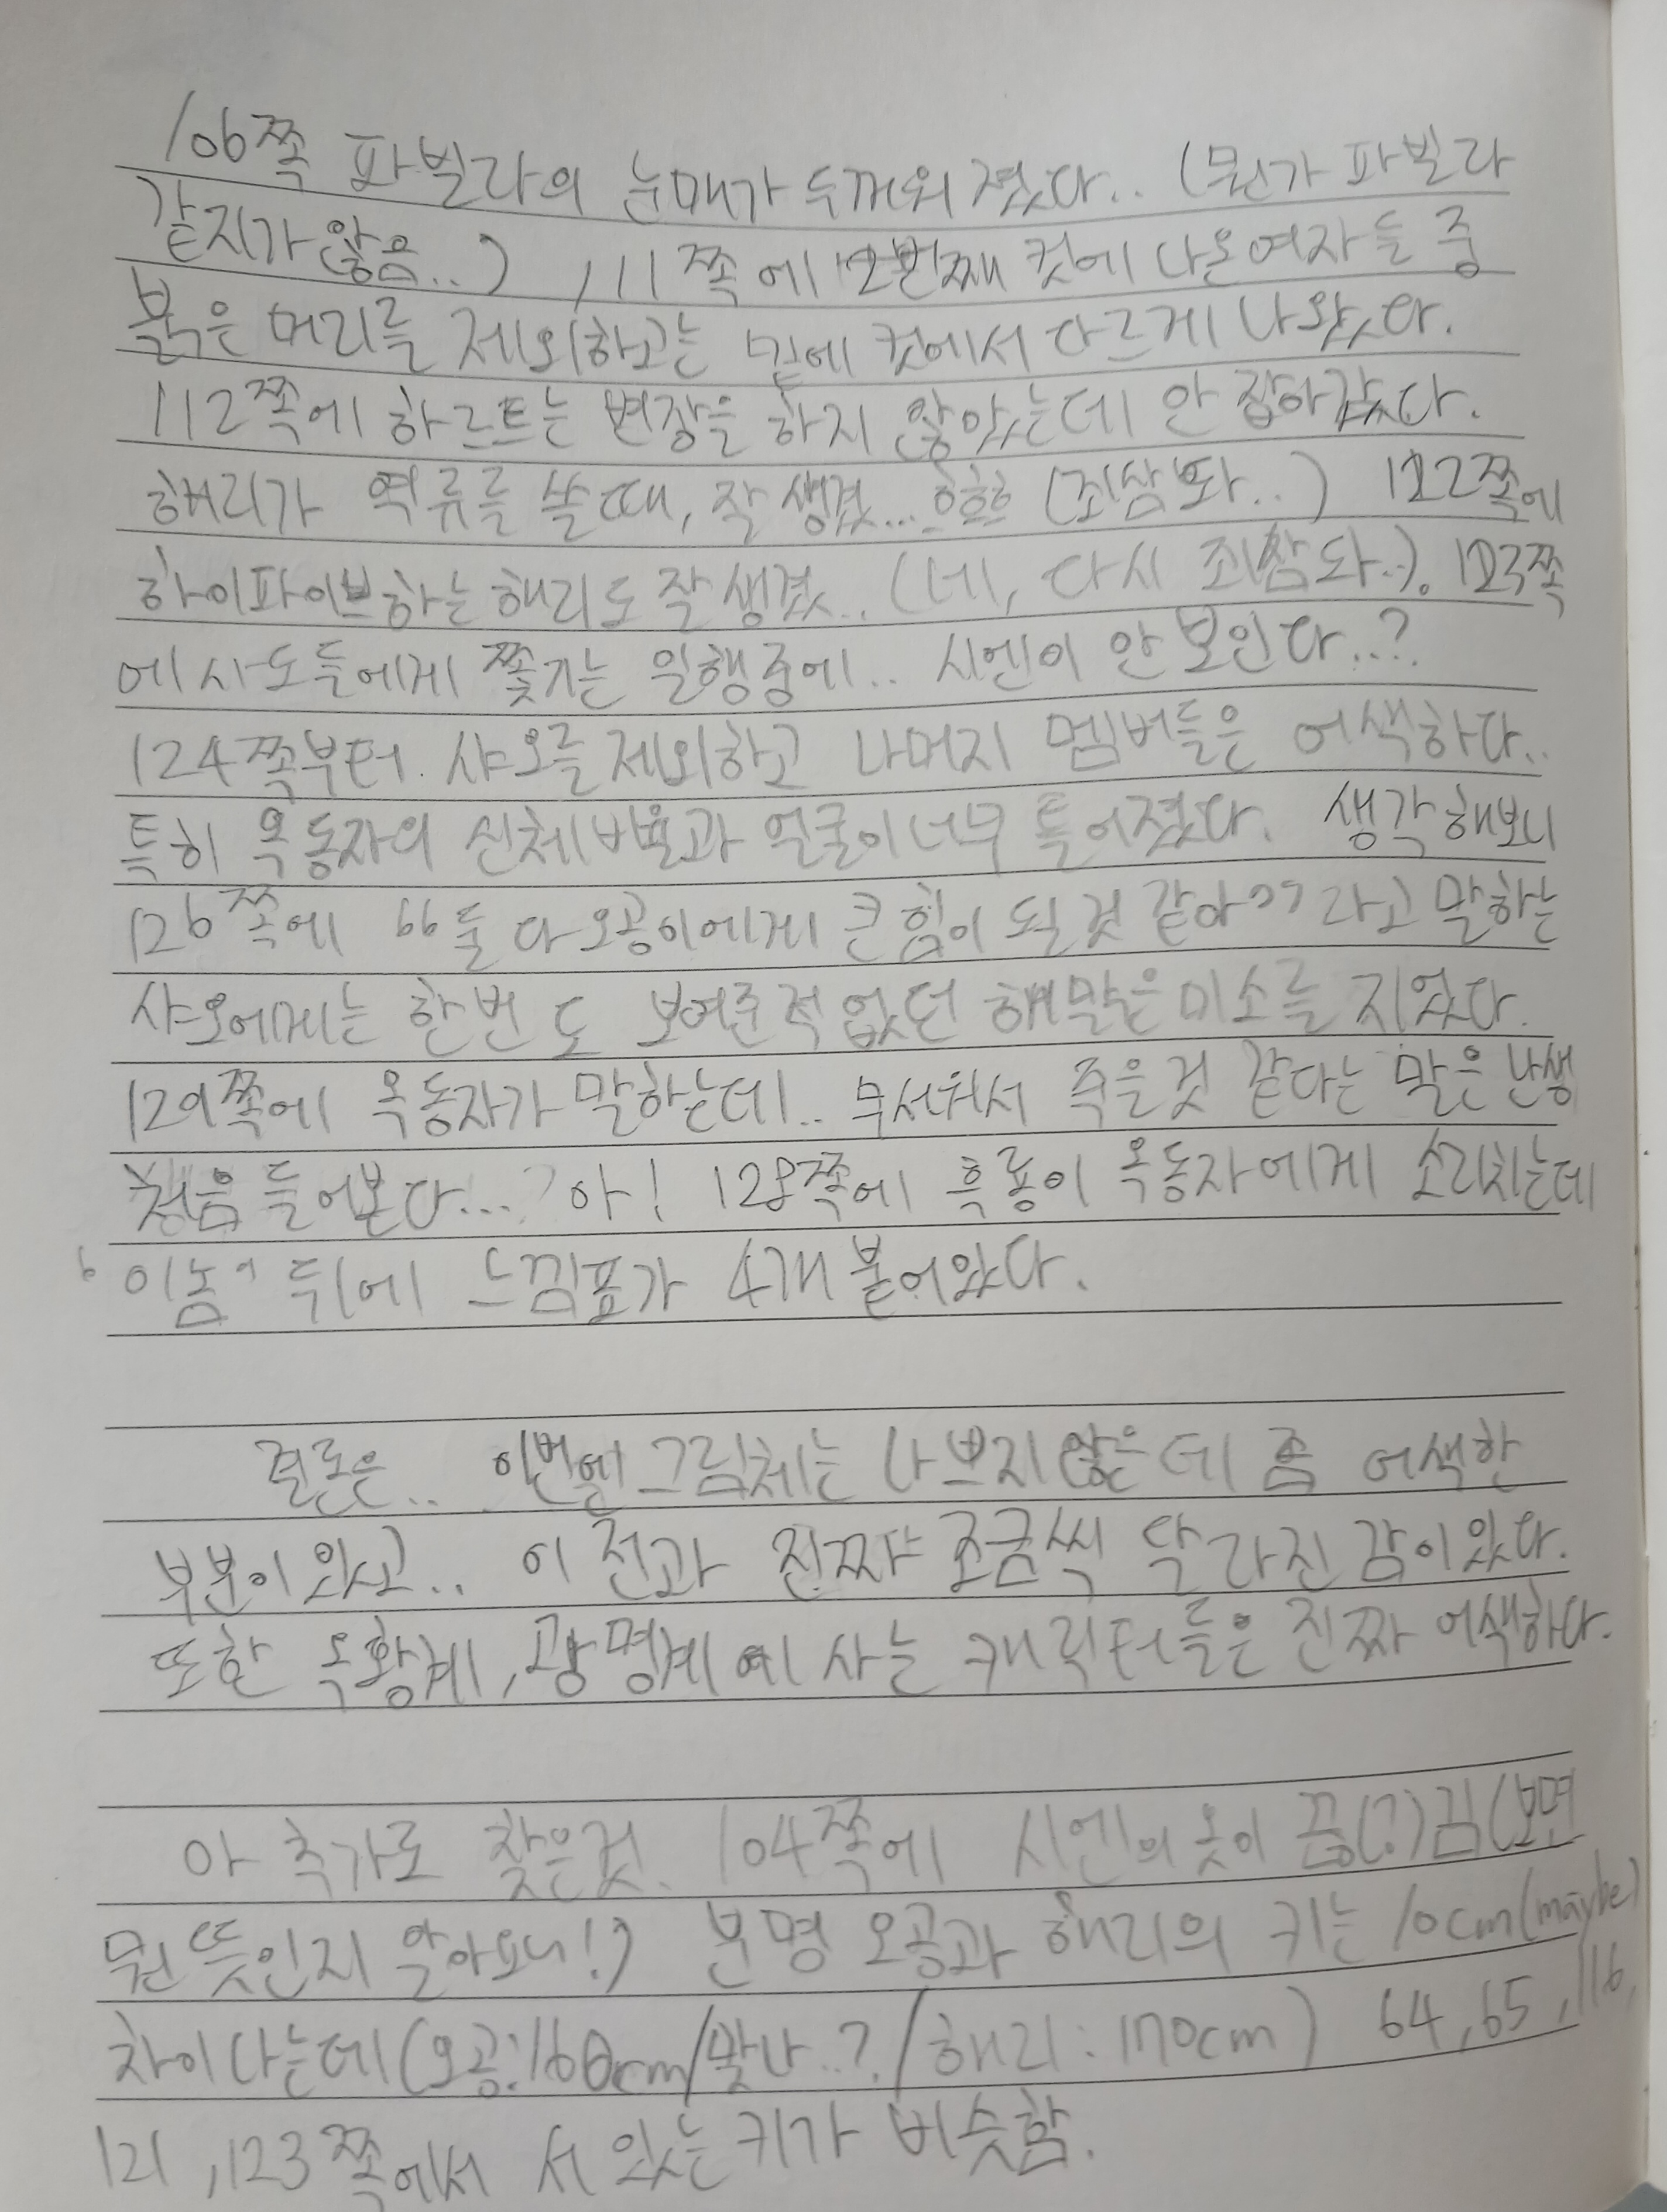 106쪽 파빌라의 눈매가 두꺼워 졌다.. (뭔가 파빌라
같지가 않음..) 111쪽에 2번째 컷에 나온 여자들 중
붉은 머리를 제외하고는 밑에 컷에서 다르게 나왔다.
112쪽에 하르트는 변장을 하지 않았는데 안 잡아갔다.
해리가 역류를 쓸 때, 잘 생겼... 흐흠 (죄삼돠..) 122쪽에
하이파이브하는 해리도 잘 생겼.. (네, 다시 죄쌈돠..). 123쪽
에 사도들에게 쫓기는 일행중에.. 시엔이 안 보인다..?
124쪽부터 샤오를 제외하고 나머지 멤버들은 어색하다..
특히 옥동자의 신체비율과 얼굴이 너무 틀어졌다. 생각해보니
126쪽에 "둘 다 오공이에게 큰 힘이 될 것 같아" 라고 말하는
샤오에게는 한번도 보여준 적 없던 해맑은 미소를 지었다.
129쪽에 옥동자가 말하는데.. 무서워서 죽을것 같다는 말은 난생
처음 들어본다...? 아! 128쪽에 흑룡이 옥동자에게 소리치는데
'이놈' 뒤에 느낌표가 4개 붙어있다.
결론은.. 이번에 그림체는 나쁘지 않은데 좀 어색한
부분이 있고.. 이 전과 진짜 조금씩 달라진 감이 있다.
또한 옥황계, 광명계에 사는 캐릭터들은 진짜 어색하다.
아 추가로 찾은것. 104쪽에 시엔의 옷이 끊(?)김 (보면
뭔 뜻인지 알아요!) 분명 오공과 해리의 키는 10cm(maybe)
차이 나는데 (오공:160cm/맞나..?/해리:170cm) 64, 65, 116,
121, 123쪽에서 서 있는 키가 비슷함.